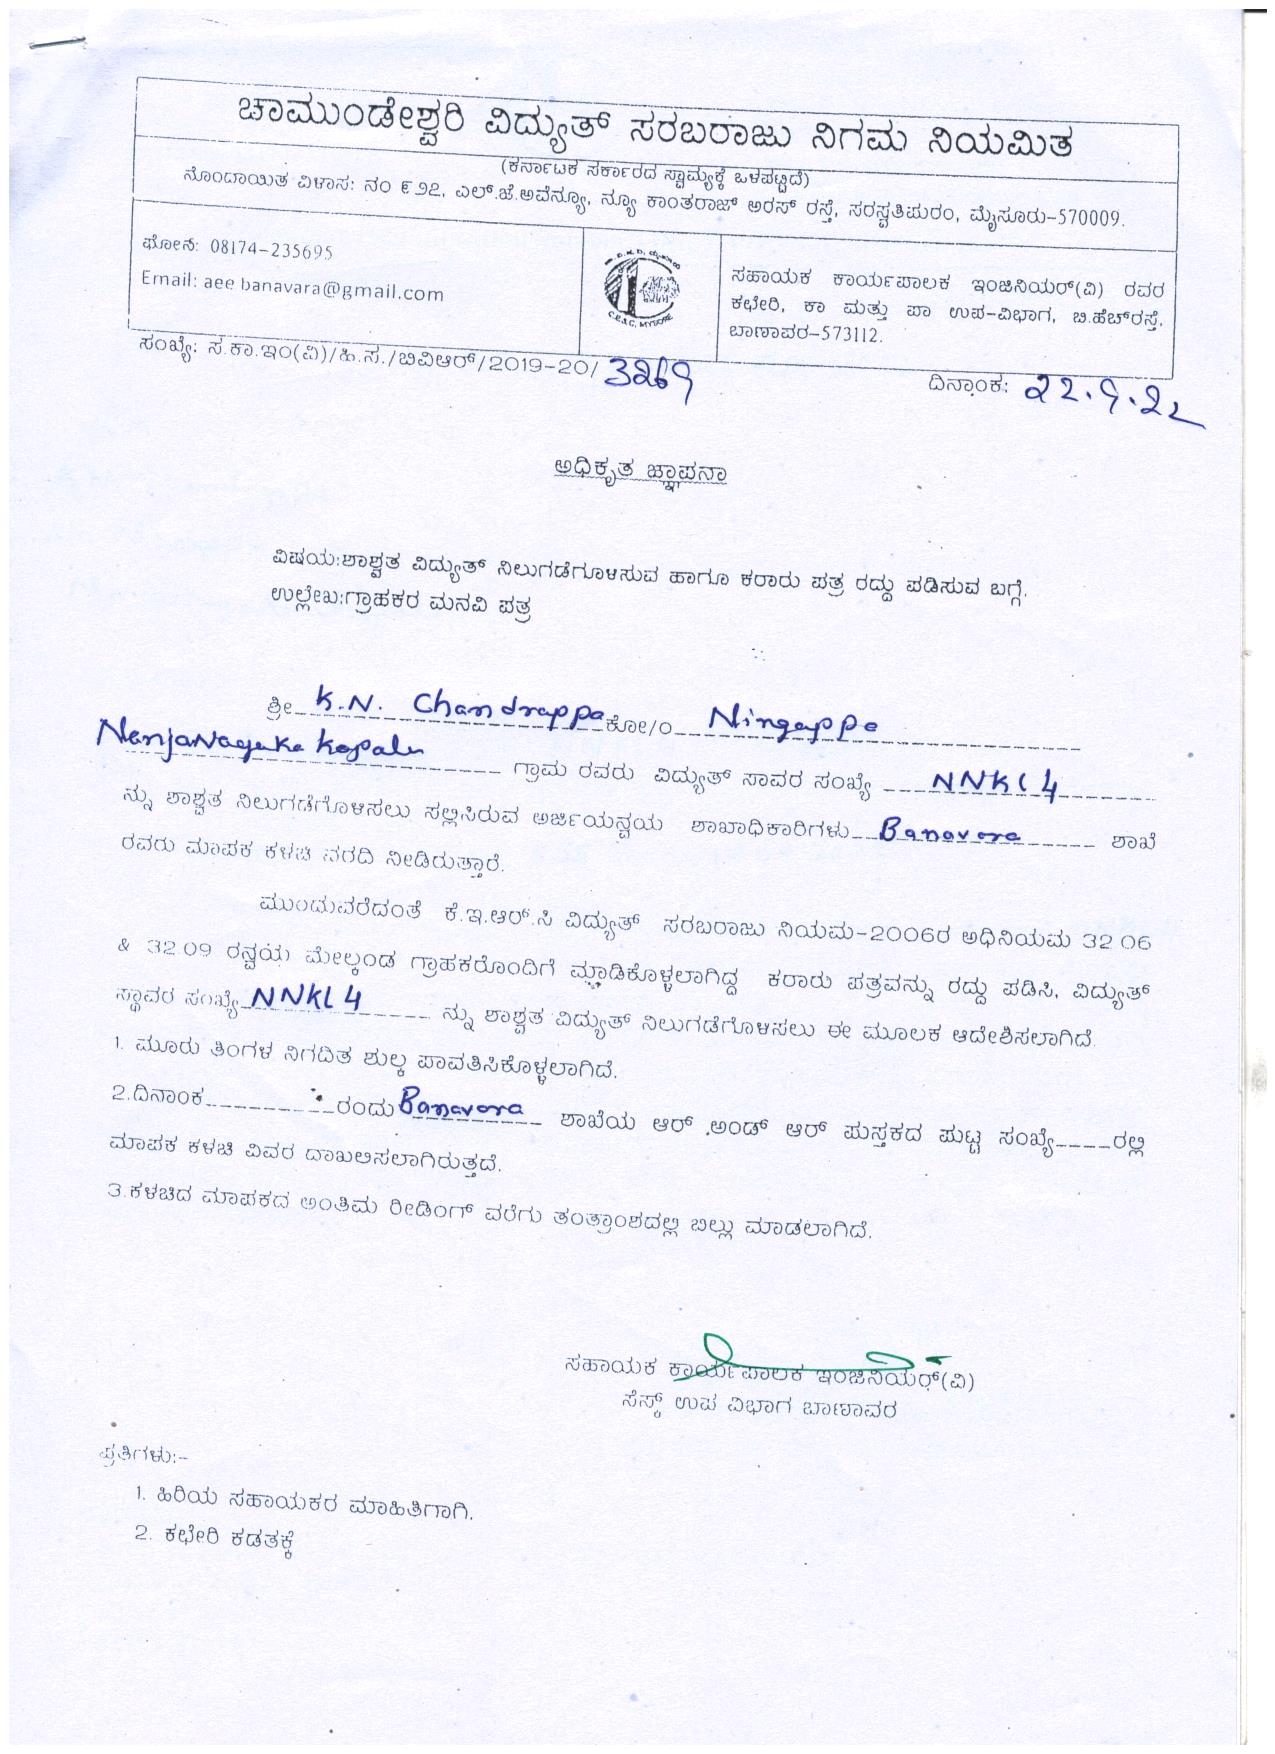 ಚಾಮುಂಡೇಶ್ವರಿ ವಿದ್ಯುತ್ ಸರಬರಾಜು ನಿಗಮ ನಿಯಮಿತ
(ಕರ್ನಾಟಕ ಸರ್ಕಾರದ ಸ್ವಾಮ್ಯಕ್ಕೆ ಒಳಪಟ್ಟಿದೆ)
ನೊಂದಾಯಿತ ವಿಳಾಸ: ನಂ ೯೨೭, ಎಲ್.ಜೆ.ಅವೆನ್ಯೂ, ನ್ಯೂ ಕಾಂತರಾಜ್ ಅರಸ್ ರಸ್ತೆ, ಸರಸ್ವತಿಪುರಂ, ಮೈಸೂರು-570009.
ಫೋನ: 08174-235695
Email: aee banavara@gmail.com
C.E.S.C, MYSORE
ಸಹಾಯಕ ಕಾರ್ಯಪಾಲಕ ಇಂಜಿನಿಯರ್(ವಿ) ರವರ
ಕಛೇರಿ, ಕಾ ಮತ್ತು ಪಾ ಉಪ-ವಿಭಾಗ, ಬಿ.ಹೆಚ್‌ರಸ್ತೆ,
ಬಾಣಾವರ-573112.
ಸಂಖ್ಯೆ: ಸ.ಕಾ.ಇಂ(ವಿ)/ಹಿ.ಸ./ಬಿವಿಆರ್/2019-20/ 3269
ದಿನಾಂಕ: 22.9.22
ಅಧಿಕೃತ ಜ್ಞಾಪನಾ
ವಿಷಯ:ಶಾಶ್ವತ ವಿದ್ಯುತ್ ನಿಲುಗಡೆಗೊಳಿಸುವ ಹಾಗೂ ಕರಾರು ಪತ್ರ ರದ್ದು ಪಡಿಸುವ ಬಗ್ಗೆ.
ಉಲ್ಲೇಖ:ಗ್ರಾಹಕರ ಮನವಿ ಪತ್ರ
ಶ್ರೀ K.N. Chandrappa ಕೋ/ಂ Ningappa
Nanjanayaka kopalu ಗ್ರಾಮ ರವರು ವಿದ್ಯುತ್ ಸಾವರ ಸಂಖ್ಯೆ NNKL 4
ನ್ನು ಶಾಶ್ವತ ನಿಲುಗಡೆಗೊಳಿಸಲು ಸಲ್ಲಿಸಿರುವ ಅರ್ಜಿಯನ್ವಯ ಶಾಖಾಧಿಕಾರಿಗಳು Banavara ಶಾಖೆ
ರವರು ಮಾಪಕ ಕಳಚಿ ವರದಿ ನೀಡಿರುತ್ತಾರೆ.
ಮುಂದುವರೆದಂತೆ ಕೆ.ಇ.ಆರ್.ಸಿ ವಿದ್ಯುತ್ ಸರಬರಾಜು ನಿಯಮ-2006ರ ಅಧಿನಿಯಮ 32.06
& 32.09 ರನ್ವಯ ಮೇಲ್ಕಂಡ ಗ್ರಾಹಕರೊಂದಿಗೆ ಮಾಡಿಕೊಳ್ಳಲಾಗಿದ್ದ ಕರಾರು ಪತ್ರವನ್ನು ರದ್ದು ಪಡಿಸಿ, ವಿದ್ಯುತ್
ಸ್ಥಾವರ ಸಂಖ್ಯೆ NNKL 4 ನ್ನು ಶಾಶ್ವತ ವಿದ್ಯುತ್ ನಿಲುಗಡೆಗೊಳಿಸಲು ಈ ಮೂಲಕ ಆದೇಶಿಸಲಾಗಿದೆ.
1. ಮೂರು ತಿಂಗಳ ನಿಗದಿತ ಶುಲ್ಕ ಪಾವತಿಸಿಕೊಳ್ಳಲಾಗಿದೆ.
2.ದಿನಾಂಕ__________ರಂದು Banavara ಶಾಖೆಯ ಆರ್ .ಅಂಡ್ ಆರ್ ಪುಸ್ತಕದ ಪುಟ್ಟ ಸಂಖ್ಯೆ____ರಲ್ಲಿ
ಮಾಪಕ ಕಳಚಿ ವಿವರ ದಾಖಲಿಸಲಾಗಿರುತ್ತದೆ.
3.ಕಳಚಿದ ಮಾಪಕದ ಅಂತಿಮ ರೀಡಿಂಗ್ ವರೆಗು ತಂತ್ರಾಂಶದಲ್ಲಿ ಬಿಲ್ಲು ಮಾಡಲಾಗಿದೆ.
ಸಹಾಯಕ ಕಾರ್ಯಪಾಲಕ ಇಂಜಿನಿಯರ್(ವಿ)
ಸೆಸ್ಕ್ ಉಪ ವಿಭಾಗ ಬಾಣಾವರ
ಪ್ರತಿಗಳು:-
1. ಹಿರಿಯ ಸಹಾಯಕರ ಮಾಹಿತಿಗಾಗಿ.
2. ಕಛೇರಿ ಕಡತಕ್ಕೆ